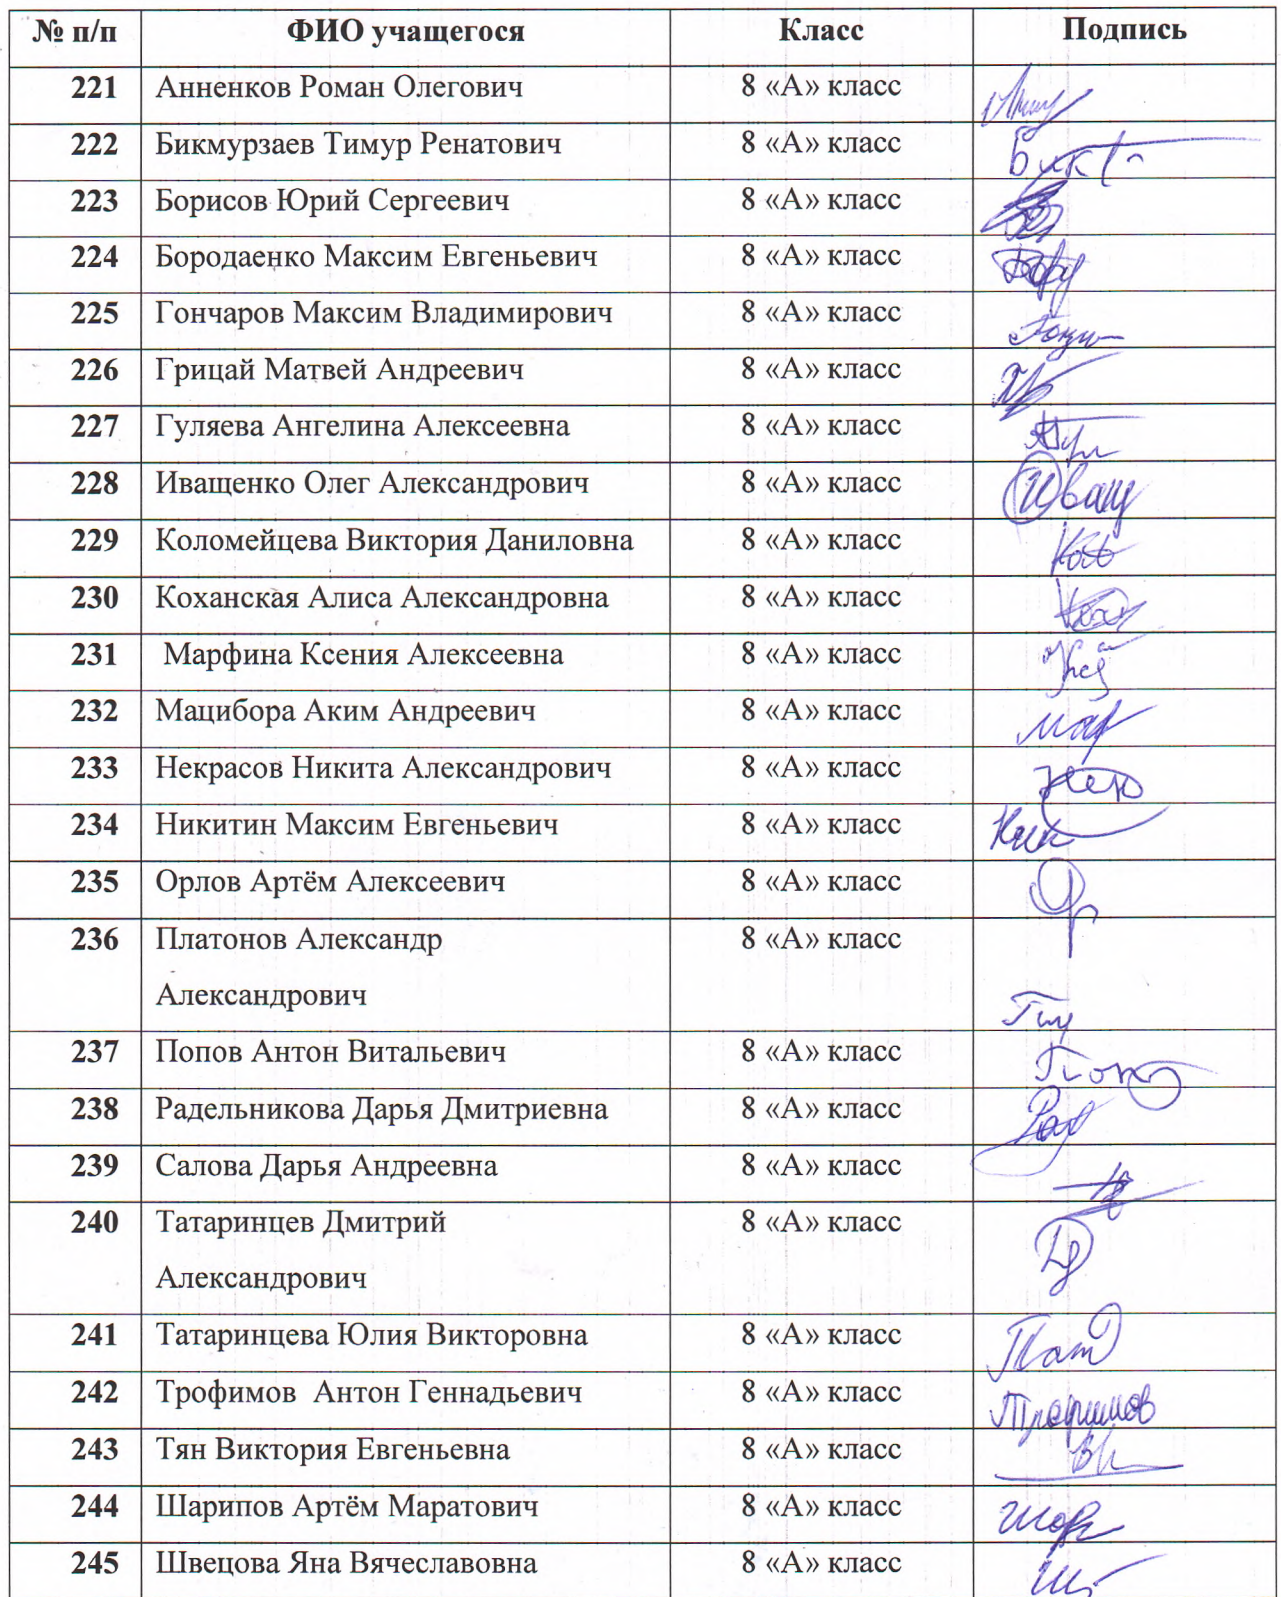 № п/п ФИО учащегося Класс Подпись
221 Анненков Роман Олегович 8 «А» класс
222 Бикмурзаев Тимур Ренатович 8 «А» класс
223 Борисов Юрий Сергеевич 8 «А» класс
224 Бородаенко Максим Евгеньевич 8 «А» класс
225 Гончаров Максим Владимирович 8 «А» класс
226 Грицай Матвей Андреевич 8 «А» класс
227 Гуляева Ангелина Алексеевна 8 «А» класс
228 Иващенко Олег Александрович 8 «А» класс Иващ
229 Коломейцева Виктория Даниловна 8 «А» класс
230 Коханская Алиса Александровна 8 «А» класс
231 Марфина Ксения Алексеевна 8 «А» класс
232 Мацибора Аким Андреевич 8 «А» класс
233 Некрасов Никита Александрович 8 «А» класс
234 Никитин Максим Евгеньевич 8 «А» класс
235 Орлов Артём Алексеевич 8 «А» класс
236 Платонов Александр 8 «А» класс
Александрович
237 Попов Антон Витальевич 8 «А» класс
238 Радельникова Дарья Дмитриевна 8 «А» класс
239 Салова Дарья Андреевна 8 «А» класс
240 Татаринцев Дмитрий 8 «А» класс
Александрович
241 Татаринцева Юлия Викторовна 8 «А» класс
242 Трофимов Антон Геннадьевич 8 «А» класс Трофимов
243 Тян Виктория Евгеньевна 8 «А» класс
244 Шарипов Артём Маратович 8 «А» класс
245 Швецова Яна Вячеславовна 8 «А» класс